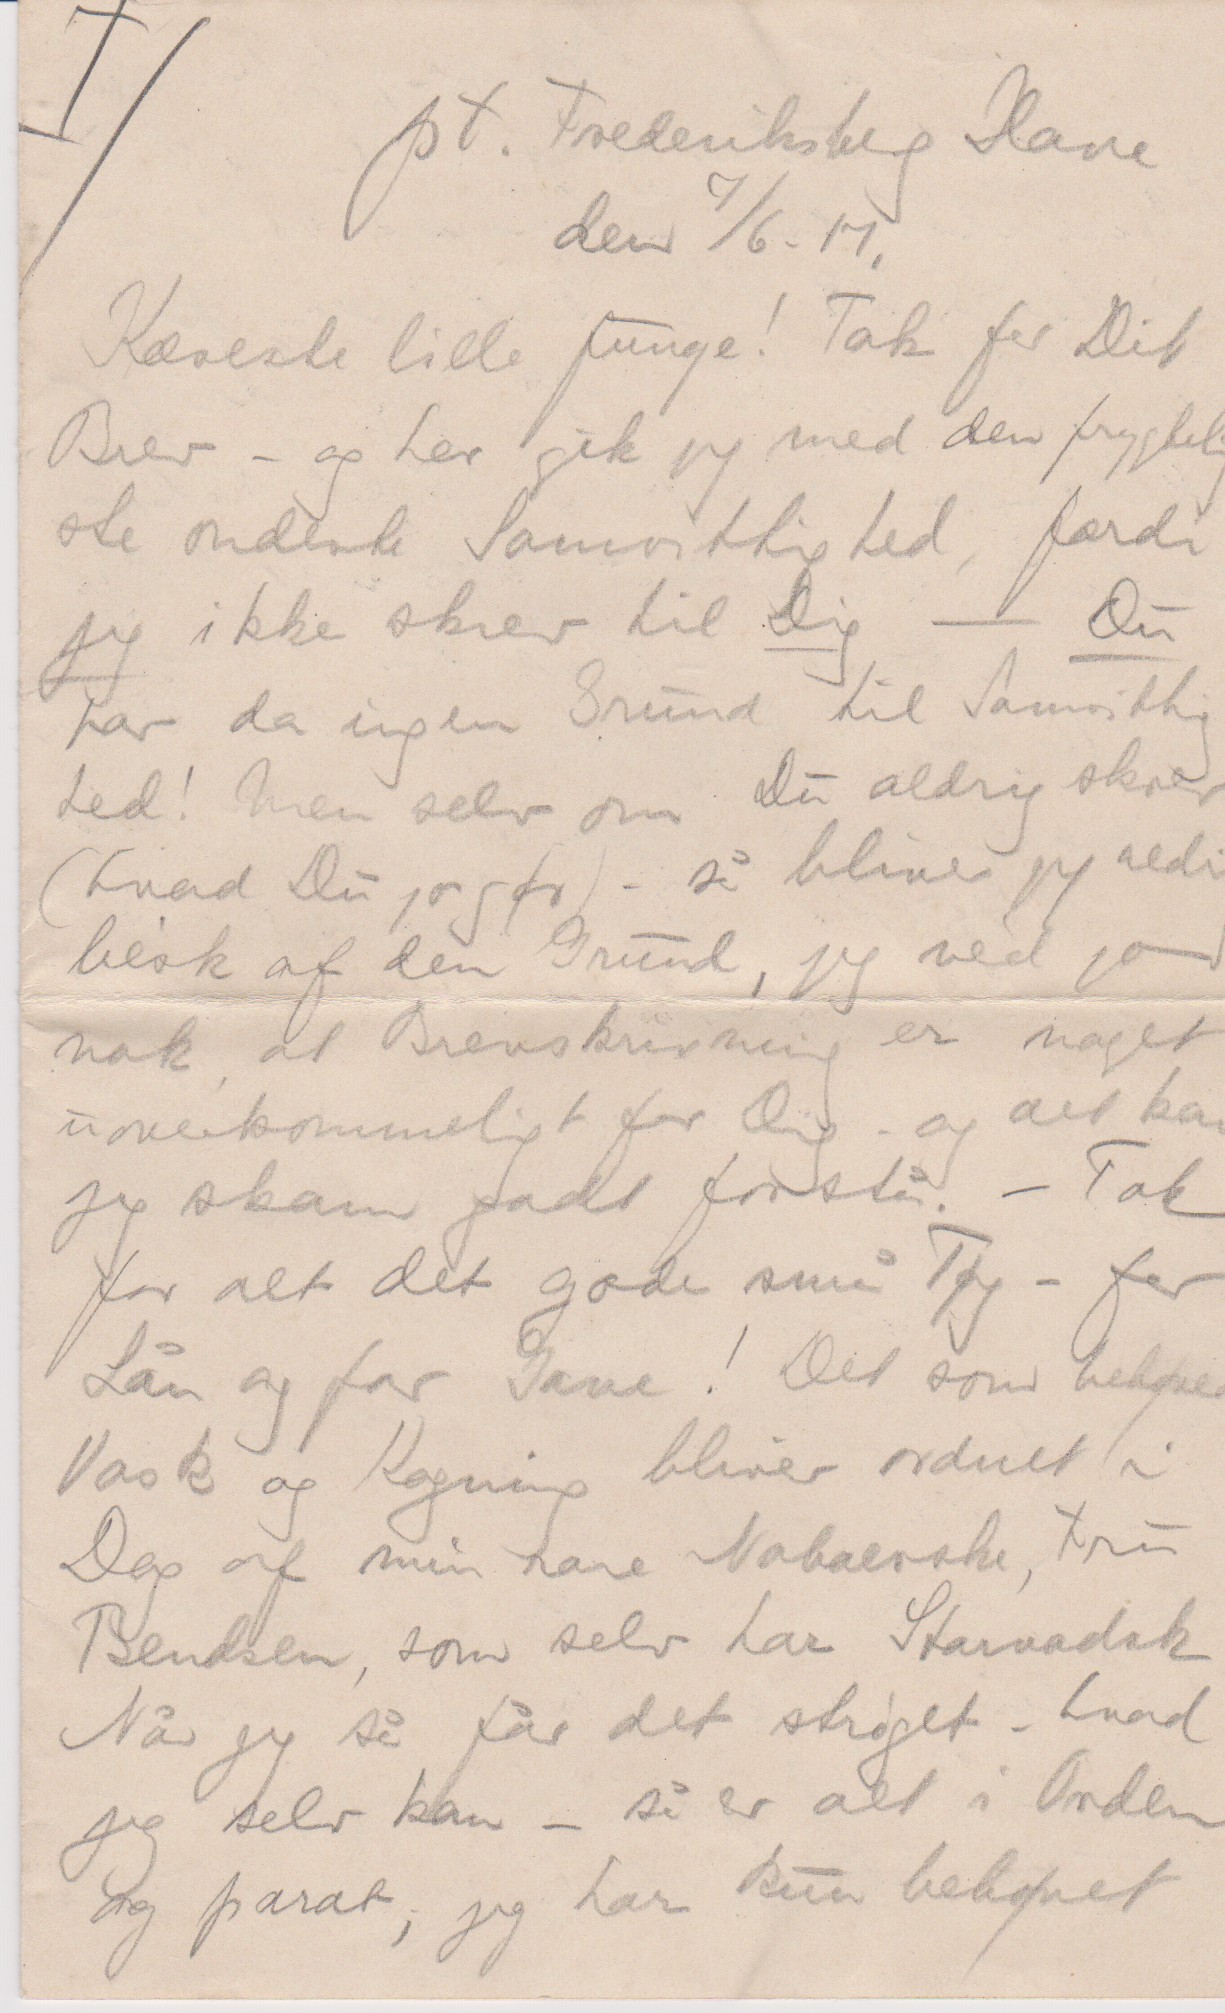 I/
pt. Frederiksberg Have
den 7/6-17.
Kæreste lille Junge! Tak for Dit
Brev - og her gik jeg med den frygtelig
ste ondeste Samvittighed, fordi
jeg ikke skrev til Dig — Du
har da ingen Grund til Samvittig
hed! Men selv om Du aldrig skrev
(hvad Du jo gør) - så bliver jeg aldrig
bisk af den Grund, jeg ved jo
nok, at Brevskrivning er noget
uoverkommeligt for Dig - og det kan
jeg skam godt forstå. - Tak
for alt det gode små Tøj - for
Lån og for Gave! Det som behøver
Vask og Kogning bliver ordnet i
Dag af min rare Naboerske, Fru
Bendsen, som selv har Storvadsk
Når jeg så får det strøget - hvad
jeg selv kan - så er alt i Orden
og parat; jeg har kun behøvet